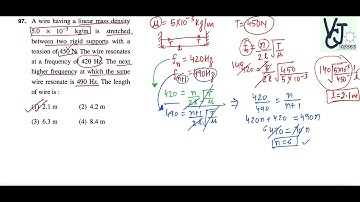 97. A wire having a linear mass density
5.0 × 10⁻³ kg/m is stretched
between two rigid supports with a
tension of 450 N. The wire resonates
at a frequency of 420 Hz. The next
higher frequency at which the same
wire resonate is 490 Hz. The length
of wire is :
(1) 2.1 m (2) 4.2 m
(3) 6.3 m (4) 8.4 m
μ = 5×10⁻³ kg/m
T=450N
fₙ = 420Hz
fₙ₊₁ = 490Hz
420 = n/2l √T/μ
490 = n+1/2l √T/μ
fₙ = n/2l √T/μ
420 = n/2l √450/5×10⁻³
⇒ 420/490 = n/n+1
420n + 420 = 490n
420 = 70n
n=6
l=2.1m
VJT